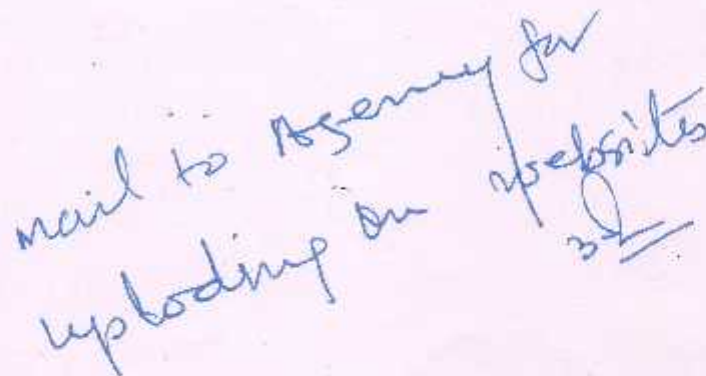 mail to Agency for
uploding on websites